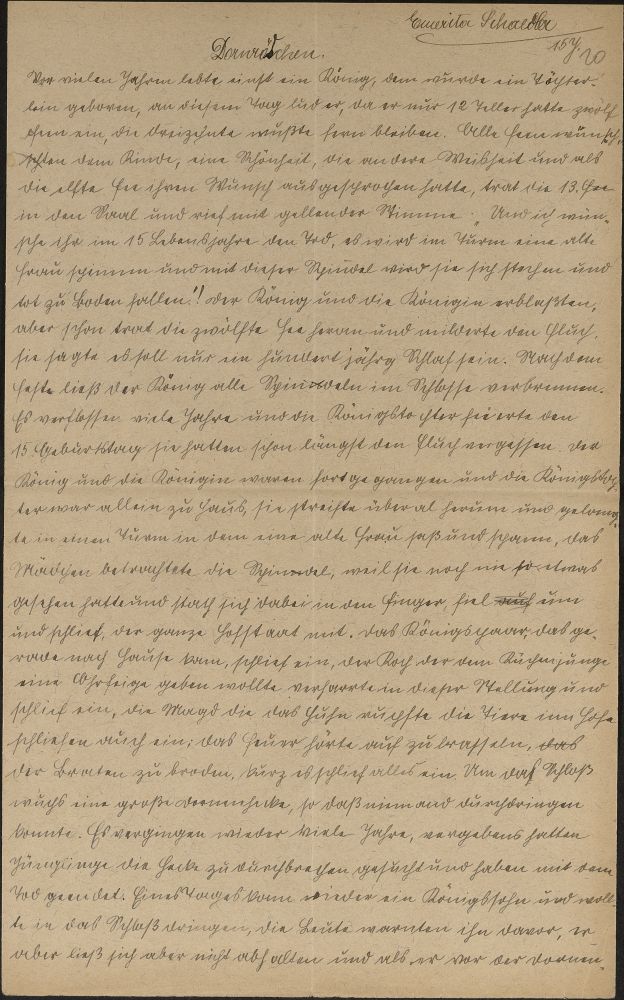 Emerita Schaedler
15 J. 20
Dornröschen.
Vor vielen Jahren lebte einst ein König, dem wurde ein Töchter-
lein geboren, an diesem Tag lud er, da er nur 12 Teller hatte zwölf
Feen ein, die dreizehnte mußte fern bleiben. Alle Feen wünsch-
schten dem Kinde, eine Schönheit, die andere Weisheit und als
die elfte Fee ihren Wunsch ausgesprochen hatte, trat die 13. Fee
in den Saal und rief mit gellender Stimme: "Und ich wün-
sche ihr im 15 Lebensjahre den Tod, es wird im Turm eine alte
Frau spinnen und mit dieser Spindel wird sie sich stechen und
tot zu Boden fallen"! Der König und die Königin erblaßten,
aber schon trat die zwölfte Fee heran und milderte den Fluch,
sie sagte es soll nur ein hundert jährg Schlaf sein. Nach dem
Feste ließ der König alle Spindeln im Schlosse verbrennen.
Es verflossen viele Jahre und die Königstochter feierte den
15. Geburtstag sie hatten schon längst den Fluch vergessen. Der
König und die Königin waren fortgegangen und die Königstoch-
ter war allein zu Haus, sie streifte überal herum und gelang-
te in einen Turm in dem eine alte Frau saß und spann, das
Mädchen betrachtete die Spindel, weil sie noch nie so etwas
gesehen hatte und stach sich dabei in den Finger, fiel auf um
und schlief, der ganze Hofstaat mit. Das Königspaar, das ge-
rade nach Hause kam, schlief ein, der Koch der dem Küchenjunge
eine Ohrfeige geben wollte verharrte in dieser Stellung und
schlief ein, die Magd die das Huhn rupfte die Tiere im Hofe
schliefen auch ein; das Feuer hörte auf zu brasseln, das
der Braten zu broden, kurz es schlief alles ein. Um das Schloß
wuchs eine große Dornenhecke, so daß niemand durchdringen
konnte. Es vergingen wieder viele Jahre, vergebens hatten
Jünglinge die Hecke zu durchbrechen gesucht und haben mit dem
Tod geendet. Eines Tages kam wieder ein Königssohn und woll-
te in das Schloß dringen, die Leute warnten ihn davor, er
aber ließ sich aber nicht abhalten und als er vor der Dornen-